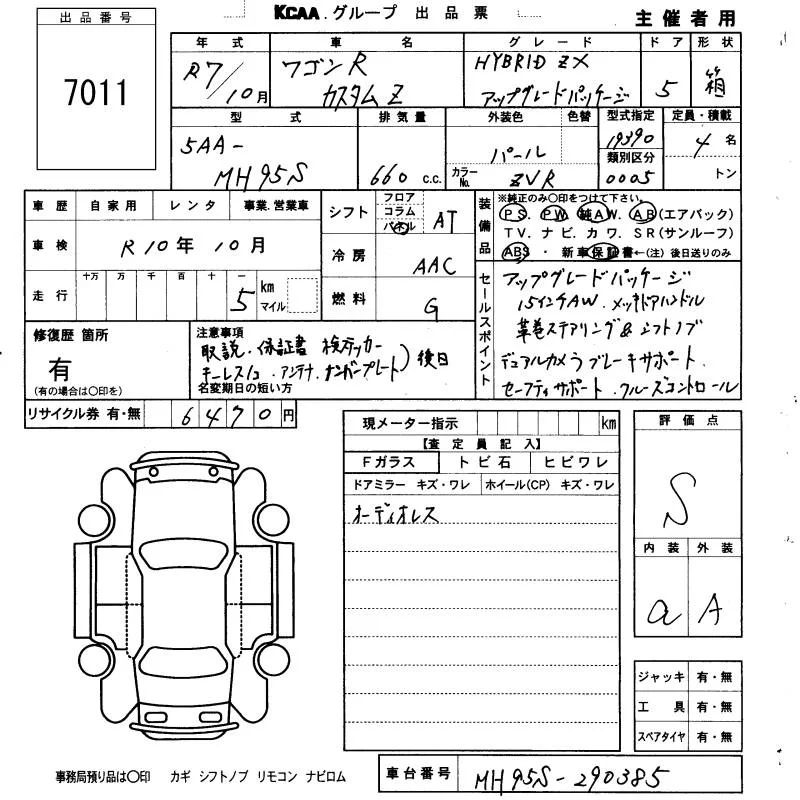 KCAA.グループ 出品票
主催者用
出品番号
7011
年式 車名 グレード ドア 形状
R7/10月 ワゴンR カスタムZ HYBRID ZX アップグレードパッケージ 5 箱
型式 排気量 外装色 色替 型式指定 定員・積載
5AA-MH95S 660 c.c. パール 19390 4名
カラーNo. ZVR 類別区分 0005 トン
車歴 自家用 レンタ 事業.営業車
車検 R10年10月
走行 十万 万 千 百 十 一
5 km マイル
シフト フロア コラム パネル AT
冷房 AAC
燃料 G
装備品 ※純正のみ〇印をつけて下さい。
PS. PW. 純AW. AB(エアバック)
TV. ナビ. カワ. SR(サンルーフ)
ABS・新車保証書←(注)後日送りのみ
セールスポイント
アップグレードパッケージ
15インチAW. メッキドアハンドル
革巻ステアリング&シフトノブ
デュアルカメラブレーキサポート.
セーフティサポート.クルーズコントロール
修復歴 箇所
有
(有の場合は〇印を)
注意事項
取説.保証書 検ステッカー
キーレス1コ.アンテナ.ナンバープレート) 後日
名変期日の短い方
リサイクル券 有・無 6470円
現メーター指示 km
【査定員記入】
Fガラス トビ石 ヒビワレ
ドアミラー キズ・ワレ ホイール(CP) キズ・ワレ
オーディオレス
評価点
S
内装 外装
a A
ジャッキ 有・無
工具 有・無
スペアタイヤ 有・無
事務局預り品は〇印 カギ シフトノブ リモコン ナビロム
車台番号 MH95S-290385